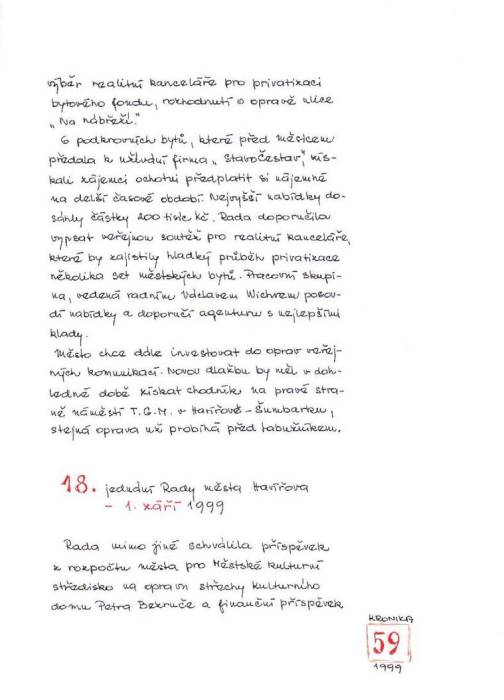 výběr realitní kanceláře pro privatizaci
bytového fondu, rozhodnutí o opravě ulice
„Na nábřeží."
6 podkrovních bytů, které před měsícem
předala k užívání firma „StavoČestav", zís-
kali zájemci ochotni předplatit si nájemné
na delší časové období. Nejvyšší nabídky do-
sáhly částky 200 tisíc Kč. Rada doporučila
vypsat veřejnou soutěž pro realitní kanceláře,
které by zajistily hladký průběh privatizace
několika set městských bytů. Pracovní skupi-
na, vedená radním Václavem Wichrem posou-
dí nabídky a doporučí agenturu s nejlepšími
klady.
Město chce dále investovat do oprav veřej-
ných komunikací. Novou dlažbu by měl v doh-
ledné době získat chodník na pravé stra-
ně náměstí T.G.M. v Havířově - Šumbarku,
stejná oprava už probíhá před Labužníkem.
18. jednání Rady města Havířova
- 1. září 1999
Rada mimo jiné schválila příspěvek
z rozpočtu města pro Městské kulturní
středisko na opravu střechy kulturního
domu Petra Bezruče a finanční příspěvek
KRONIKA
59
1999